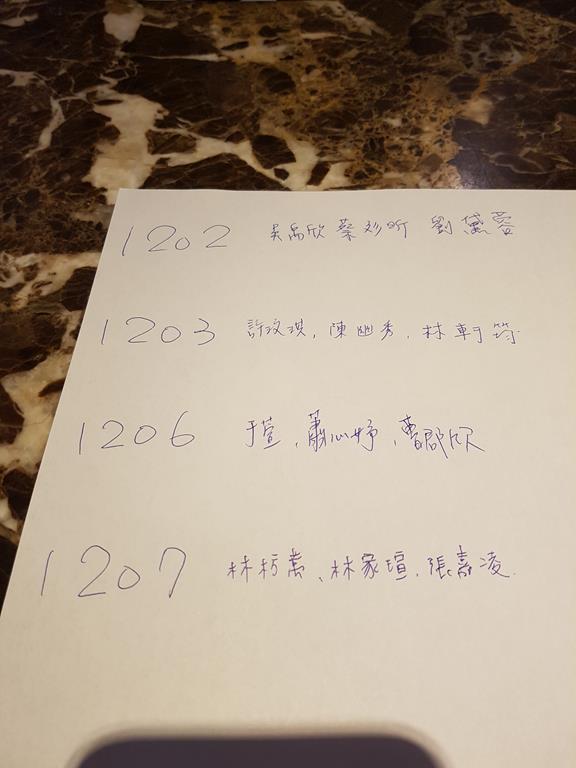 1202 吳禹欣 蔡妙昕 劉黛蓉
1203 許玟琪, 陳幽秀, 林軒筠
1206 于萱, 蕭心妤, 曹郡欣
1207 林枋萭、林家瑄, 張嘉凌